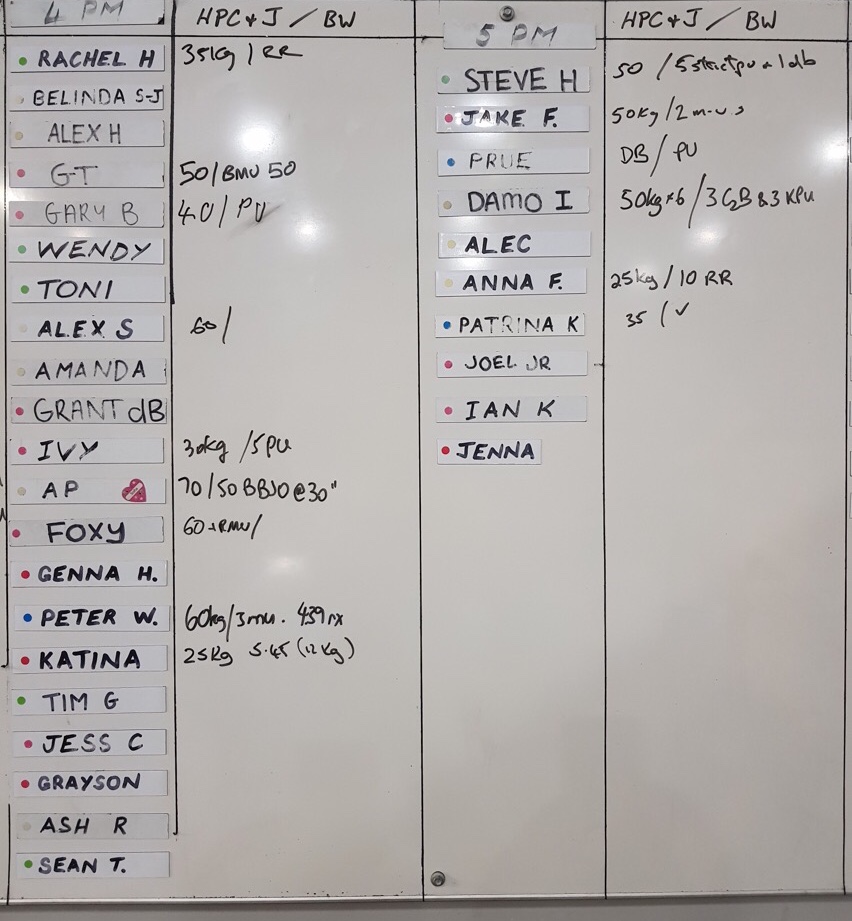 4 PM HPC & J / BW
RACHEL H 35kg / RR
BELINDA S-J
ALEX H
G-T 50/BMU 50
GARY B 40 / PU
WENDY
TONI
ALEX S 60/
AMANDA
GRANT dB
IVY 30kg /5PU
AP 70/50 BBJO@30"
FOXY 60 RMU/
GENNA H.
PETER W. 60kg/3mu. 439 rx
KATINA 25kg 5.45 (12kg)
TIM G
JESS C
GRAYSON
ASH R
SEAN T.
5 PM HPC & J / BW
STEVE H 50 / 5 strict pu 1db
JAKE F. 50kg/2 m-u
PRUE DB/ PU
DAMO I 50kg×6 / 3 C2B & 3 KPU
ALEC
ANNA F. 25kg / 10 RR
PATRINA K 35 / ✓
JOEL JR
IAN K
JENNA